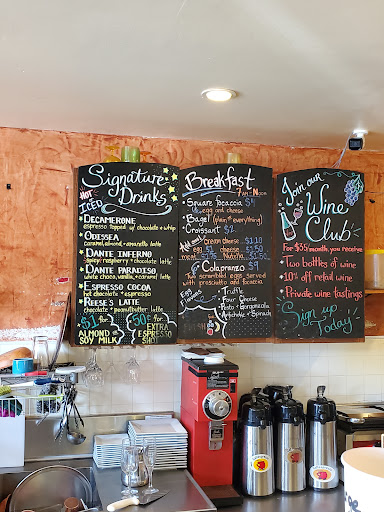 Signature
Drinks
HOT
ICED
DECAMERONE
espresso topped w/ chocolate + whip
ODISSEA
caramel, almond, + amaretto latte
DANTE INFERNO
spicy raspberry + chocolate latte
DANTE PARADISO
white choco, vanilla, + caramel latte
ESPRESSO COCOA
hot chocolate + espresso
REESE'S LATTE
chocolate + peanutbutter latte
$1 for
ALMOND
SOY MILK
50¢ for
EXTRA
ESPRESSO
SHOT
Breakfast
7am - Noon
Square Focaccia $4
egg and cheese
Bagel (plain or everything)
Croissant $2
Add on!
cream cheese $1.10
egg $1 cheese $1.50
meat $2 Nutella $1.50
Colapranzo $9
Two scrambled eggs served
with prosciutto and focaccia
Egg
Truffle
Four Cheese
Artichoke + Spinach
Join our
Wine
Club
for $35/month, you receive
Two bottles of wine
10% off retail wine
Private wine tastings
Sign up
Today!